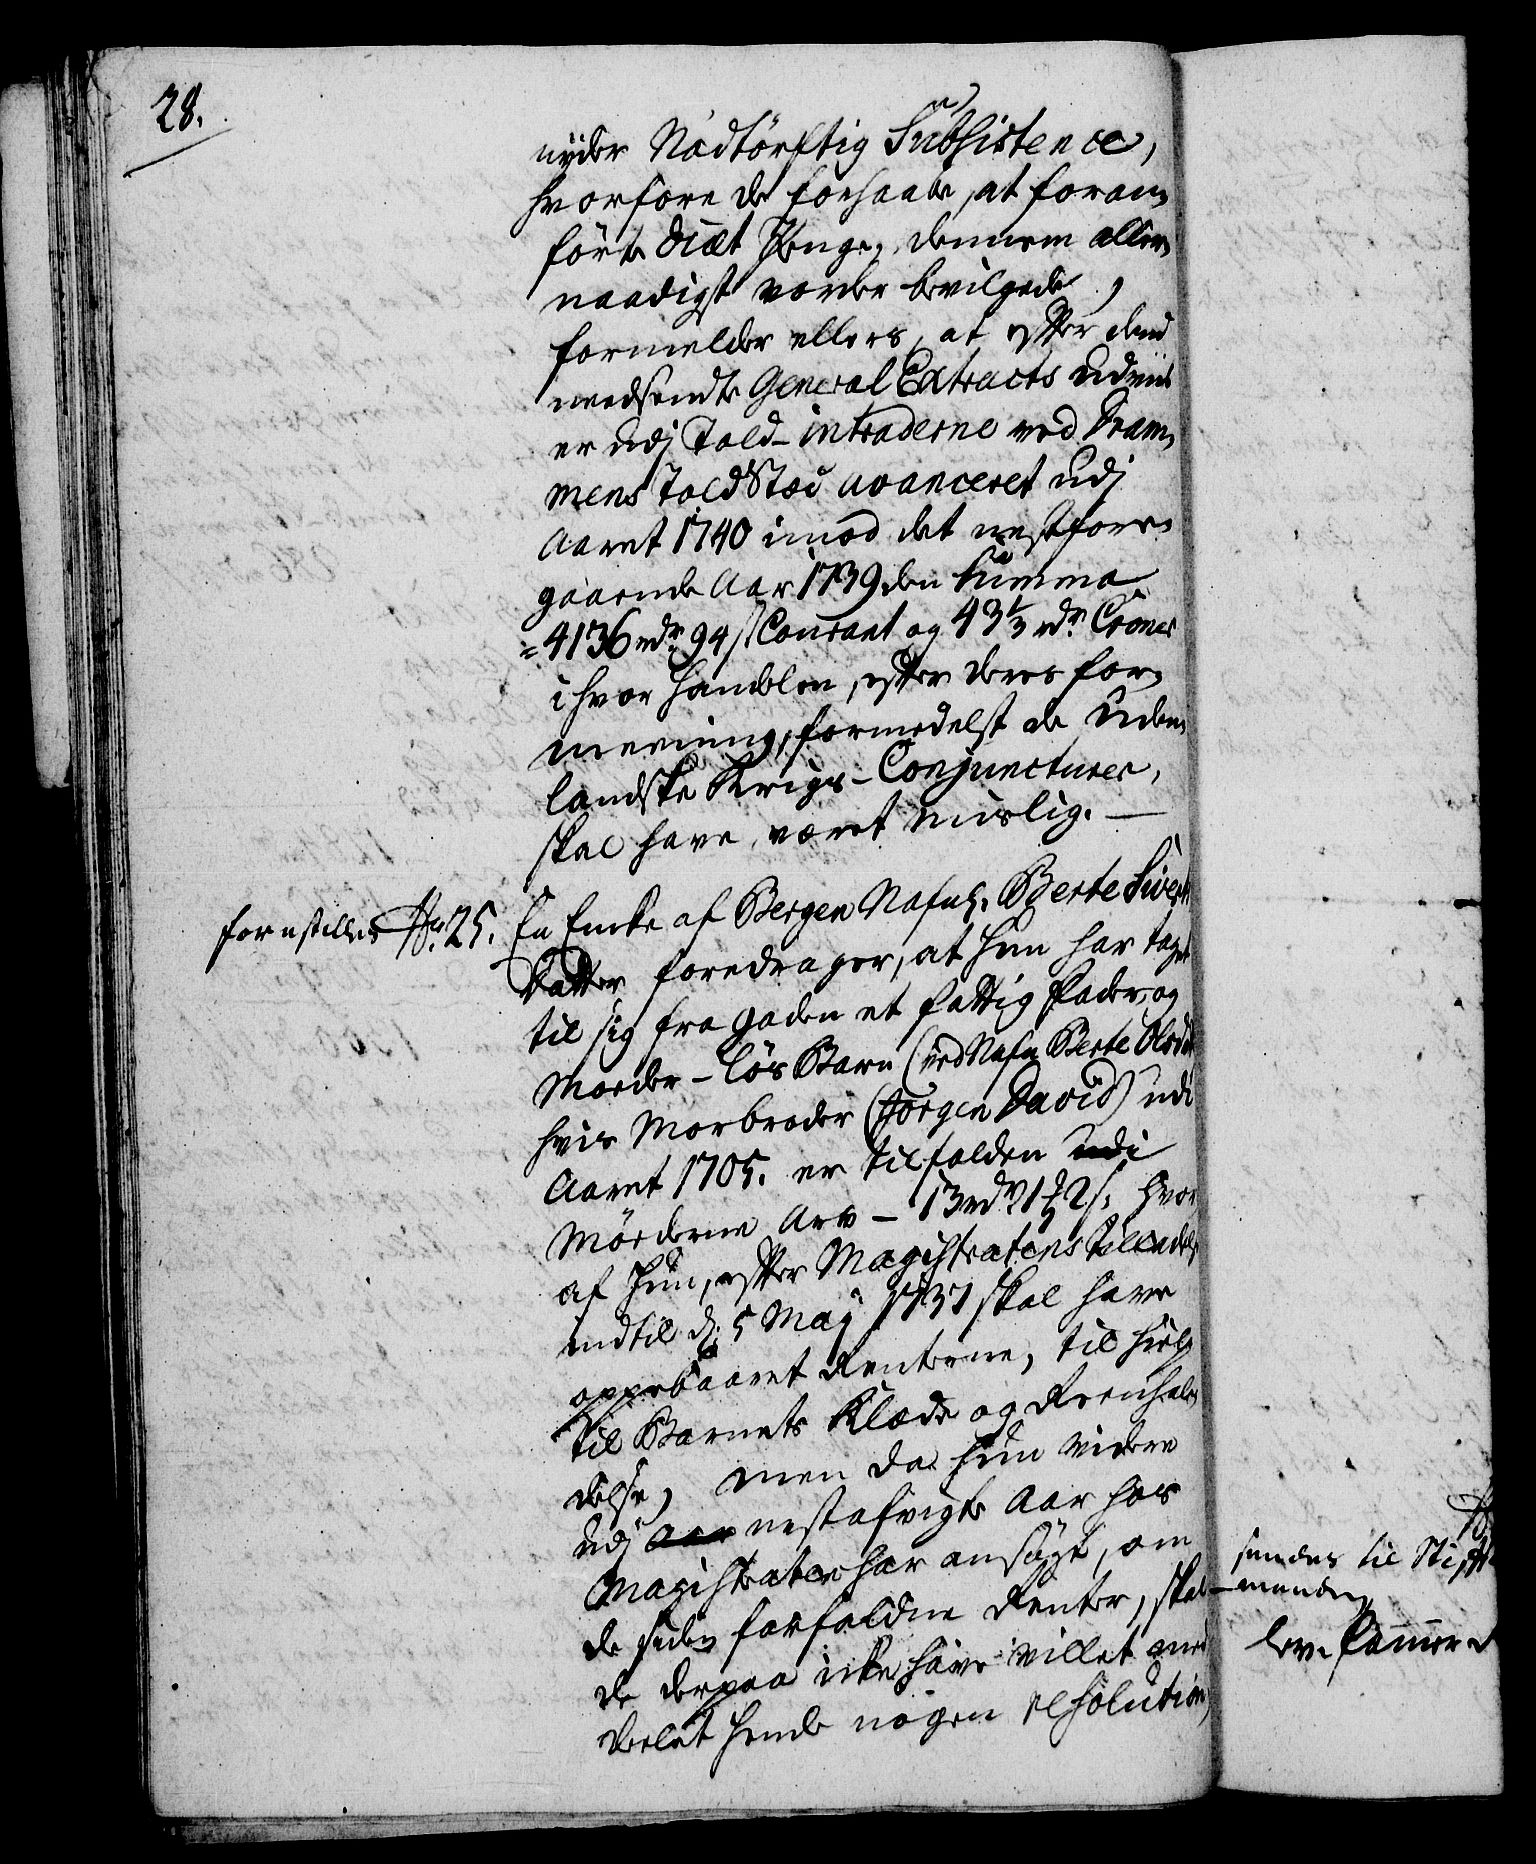 28.
nyder Nødtørftig Subsistence,
hvorfore de forhaabe, at foran-
førte Diæt Penge, dennem aller-
naadigst vorder bevilgede,
formelder ellers, at efter dend
nedsendte General Extracts udviis
er udj Told-intraderne ved Dram-
mens ToldStæd avanceret udj
Aaret 1740 imod det nestfore-
gaaende Aar 1739 den Summa
4136 rdr 94 s Courant og 43 1/3 rdr Croner
ihvor Handelen, efter deres for-
meening, formedelst de uden-
landske Krigs-Conjuncturer,
skal have været mislig.
forestilles No 25. En Encke af Bergen Nafnl. Berte Sivers
Datter foredrager, at hun har taget
til sig fra gaden et fattig Fader, og
Moder-løs Barn (ved Nafn Berte Olsdt
hvis Morbroder (Jørgen David) udi
Aaret 1705. er tilfalden udi
Mørderne Arv - 13 rdr 1 2 s: hvor
af hun, efter Magistratens Tilladelse
indtil d: 5 Maj 1737 skal have
oppebaaret Renterne, til hielp
til Barnets Klæde og Reenhol-
delse, men da hun videre
udj Aar nestafvigte Aar hos
Magistraten har ansøgt, om
de siden forfaldne Renter, skal
de derpaa icke have villet med
deelet hende nogen resolution,
sendes til Stift
manden